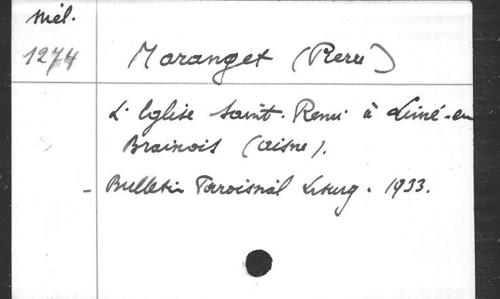 Mél.
1274
Moranget (Pierre)
L'Eglise Saint-Remi à Limé-en
Brainois (Aisne).
- Bulletin Paroissial Liturg. 1933.